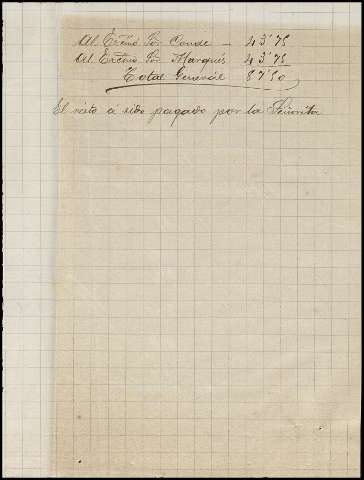 Al Excmo Sor Conde — 43'75
Al Excmo Sor Marqués 43'75
Total General 87'50
El resto á sido pagado por la Señorita